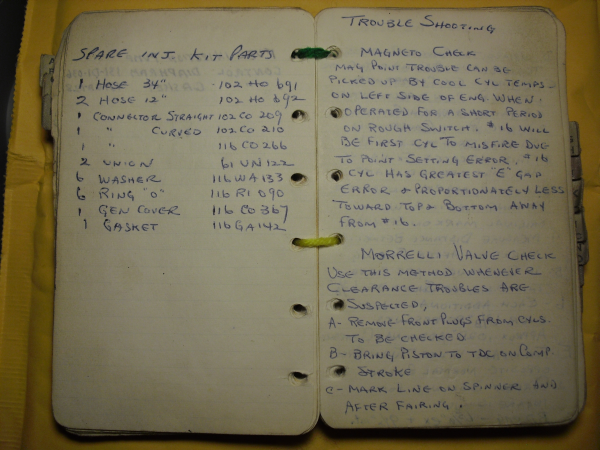 SPARE INJ. KIT PARTS
1 HOSE 34" 102 HO 691
2 HOSE 12" 102 HO 692
1 CONNECTOR STRAIGHT 102 CO 209
1 " CURVED 102 CO 210
1 " 116 CO 266
2 UNION 61 UN 122
6 WASHER 116 WA 133
6 RING "O" 116 RI 090
1 GEN COVER 116 CO 367
1 GASKET 116 GA 142
TROUBLE SHOOTING
MAGNETO CHECK
MAG POINT TROUBLE CAN BE
PICKED UP BY COOL CYL TEMPS-
ON LEFT SIDE OF ENG WHEN
OPERATED FOR A SHORT PERIOD
ON ROUGH SWITCH. #16 WILL
BE FIRST CYL TO MISFIRE DUE
TO POINT SETTING ERROR. #16
CYL HAS GREATEST "E" GAP
ERROR & PROPORTIONATELY LESS
TOWARD TOP & BOTTOM AWAY
FROM #16.
MORRELLI VALVE CHECK
USE THIS METHOD WHENEVER
CLEARANCE TROUBLES ARE
SUSPECTED,
A- REMOVE FRONT PLUGS FROM CYLS
TO BE CHECKED
B- BRING PISTON TO TDC ON COMP.
STROKE
C- MARK LINE ON SPINNER AND
AFTER FAIRING.